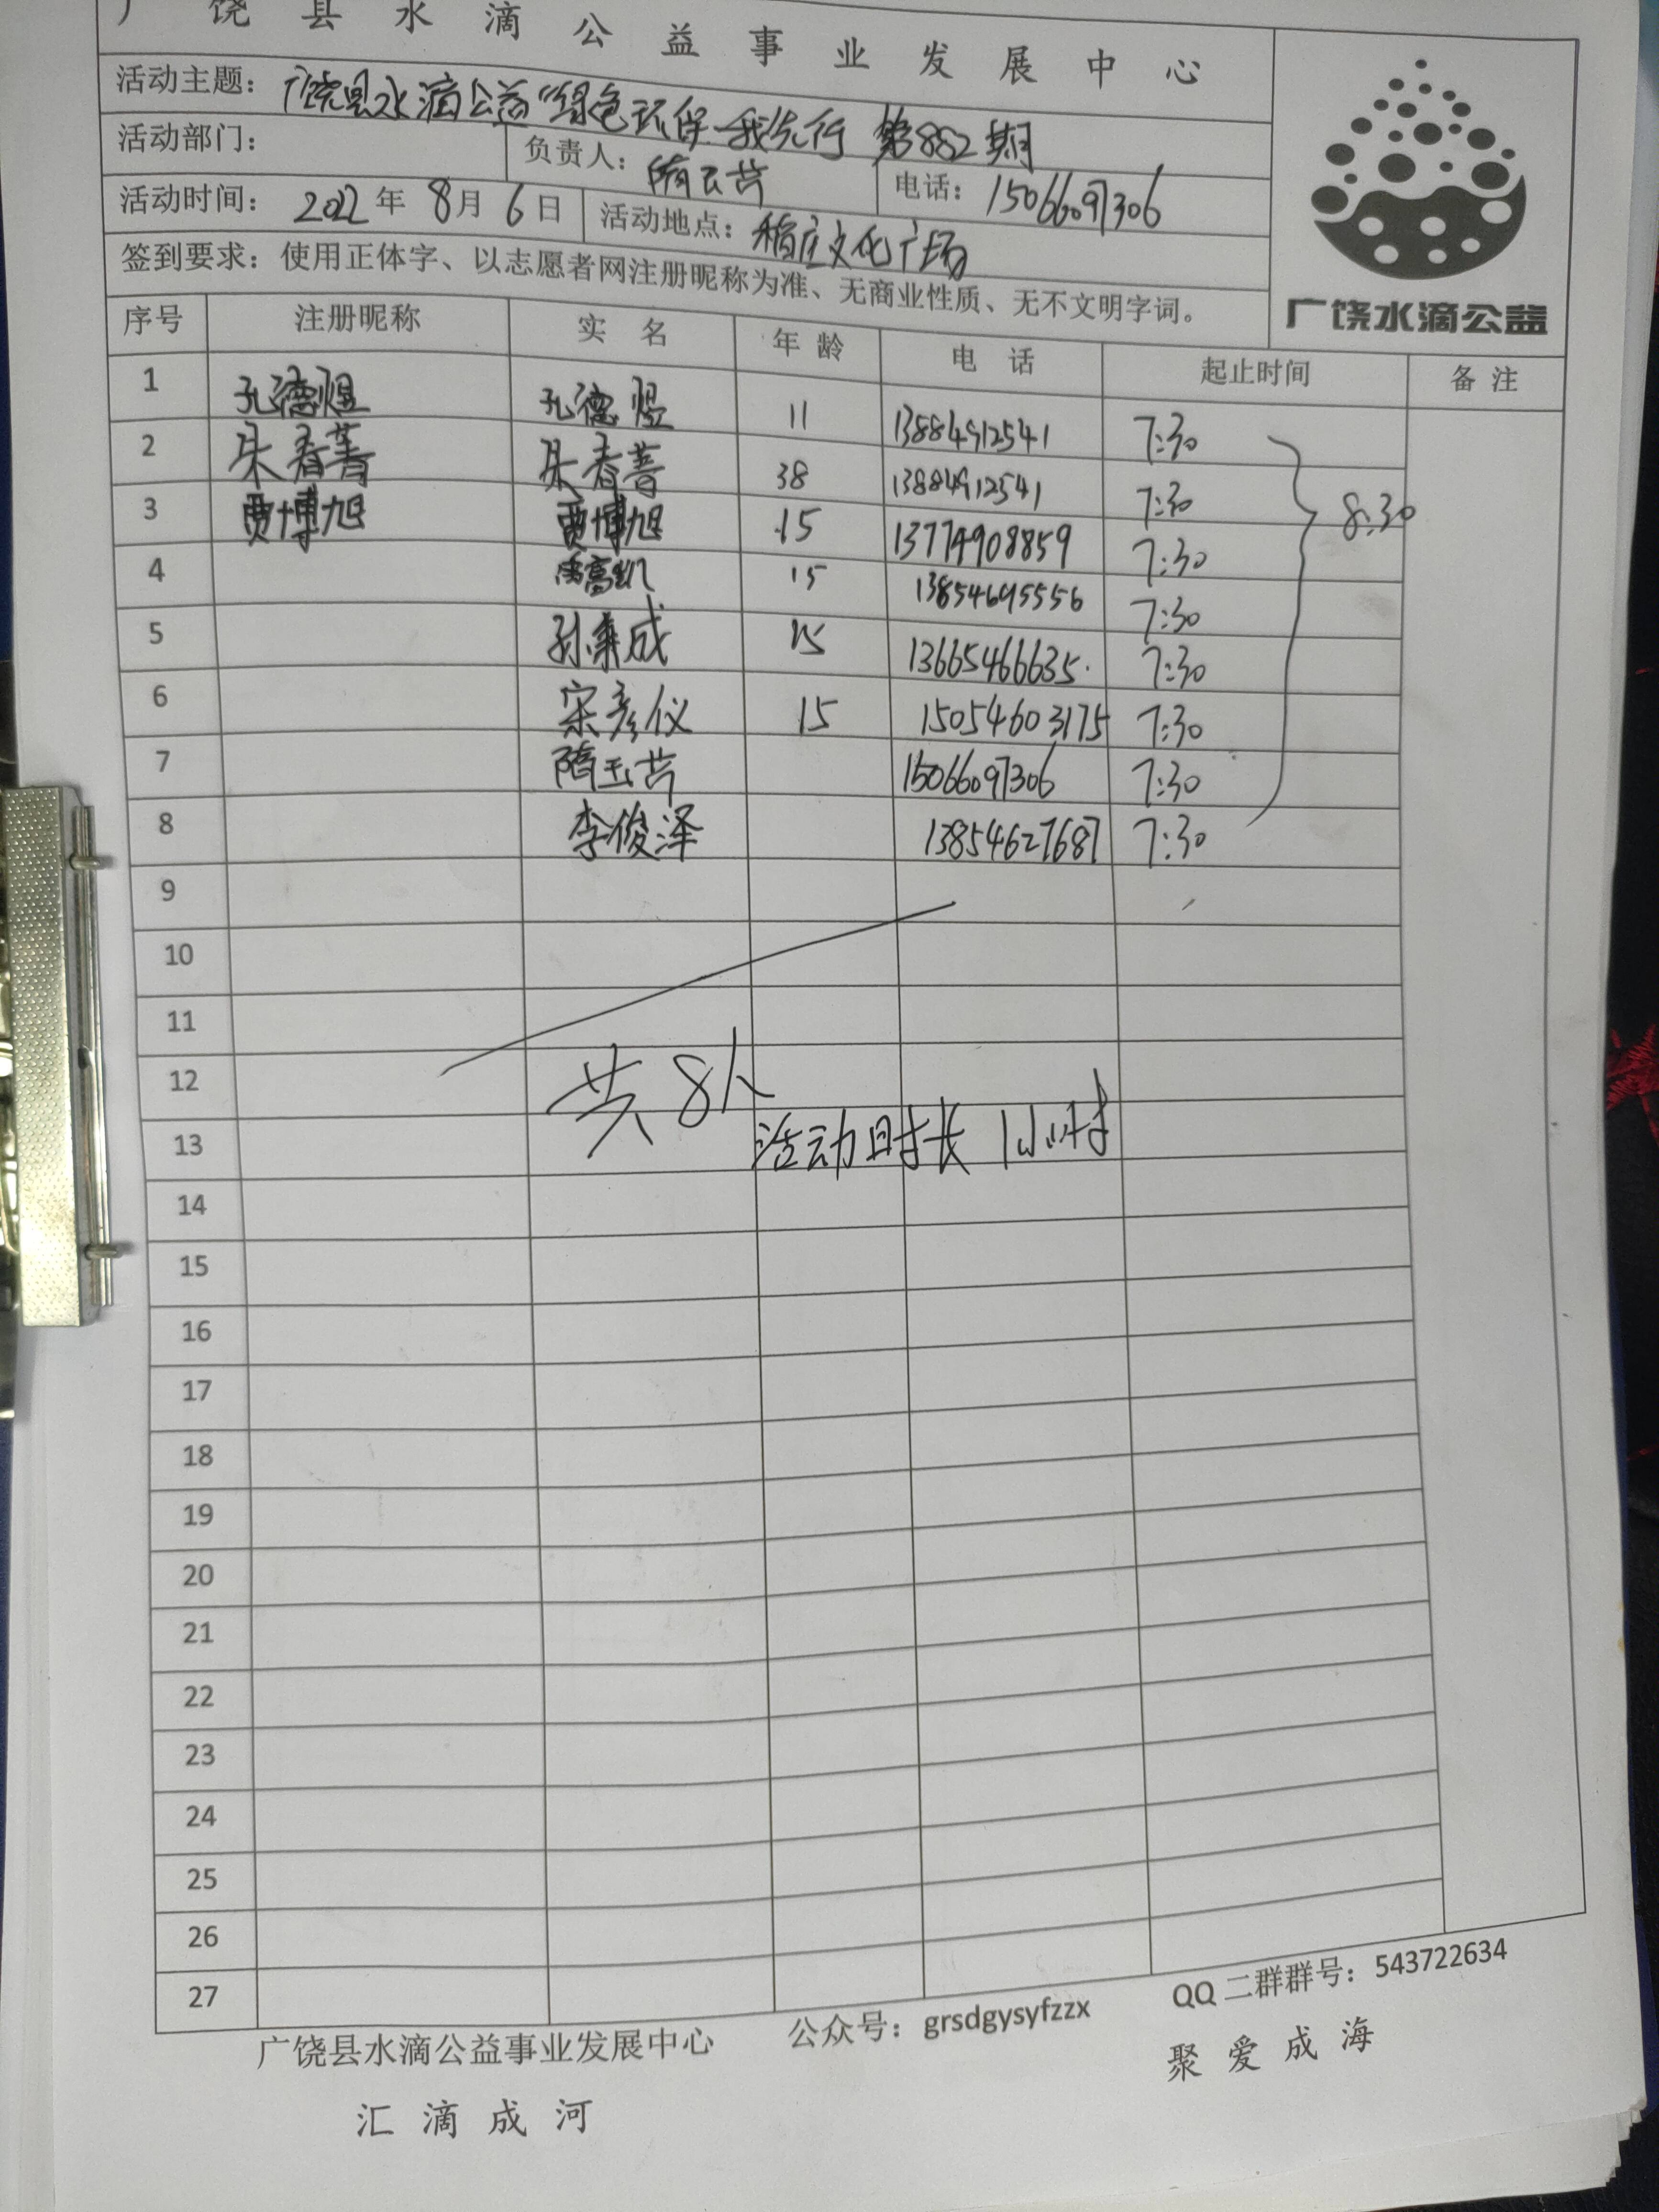 广饶县水滴公益事业发展中心
活动主题：广饶县水滴公益“绿色环保 我先行 第882期
活动部门： 负责人：隋玉芸 电话：15066097306
活动时间：2022年8月6日 活动地点：稻庄文化广场
签到要求：使用正体字、以志愿者网注册昵称为准、无商业性质、无不文明字词。
广饶水滴公益
序号 注册昵称 实名 年龄 电话 起止时间 备注
1 孔德煜 孔德煜 11 13884912541 7:30
2 朱春菁 朱春菁 38 13884912541 7:30
8:30
3 贾博旭 贾博旭 15 13774908859 7:30
4 高凯 15 13854695556 7:30
5 孙集成 15 13665466635 7:30
6 宋彦仪 15 15054603175 7:30
7 隋玉芸 15066097306 7:30
8 李俊泽 13854627687 7:30
9
10
11
12 共8人
13 活动时长 1小时
14
15
16
17
18
19
20
21
22
23
24
25
26
27
广饶县水滴公益事业发展中心 公众号：grsdgysyfzzx QQ二群群号：543722634
汇滴成河 聚爱成海